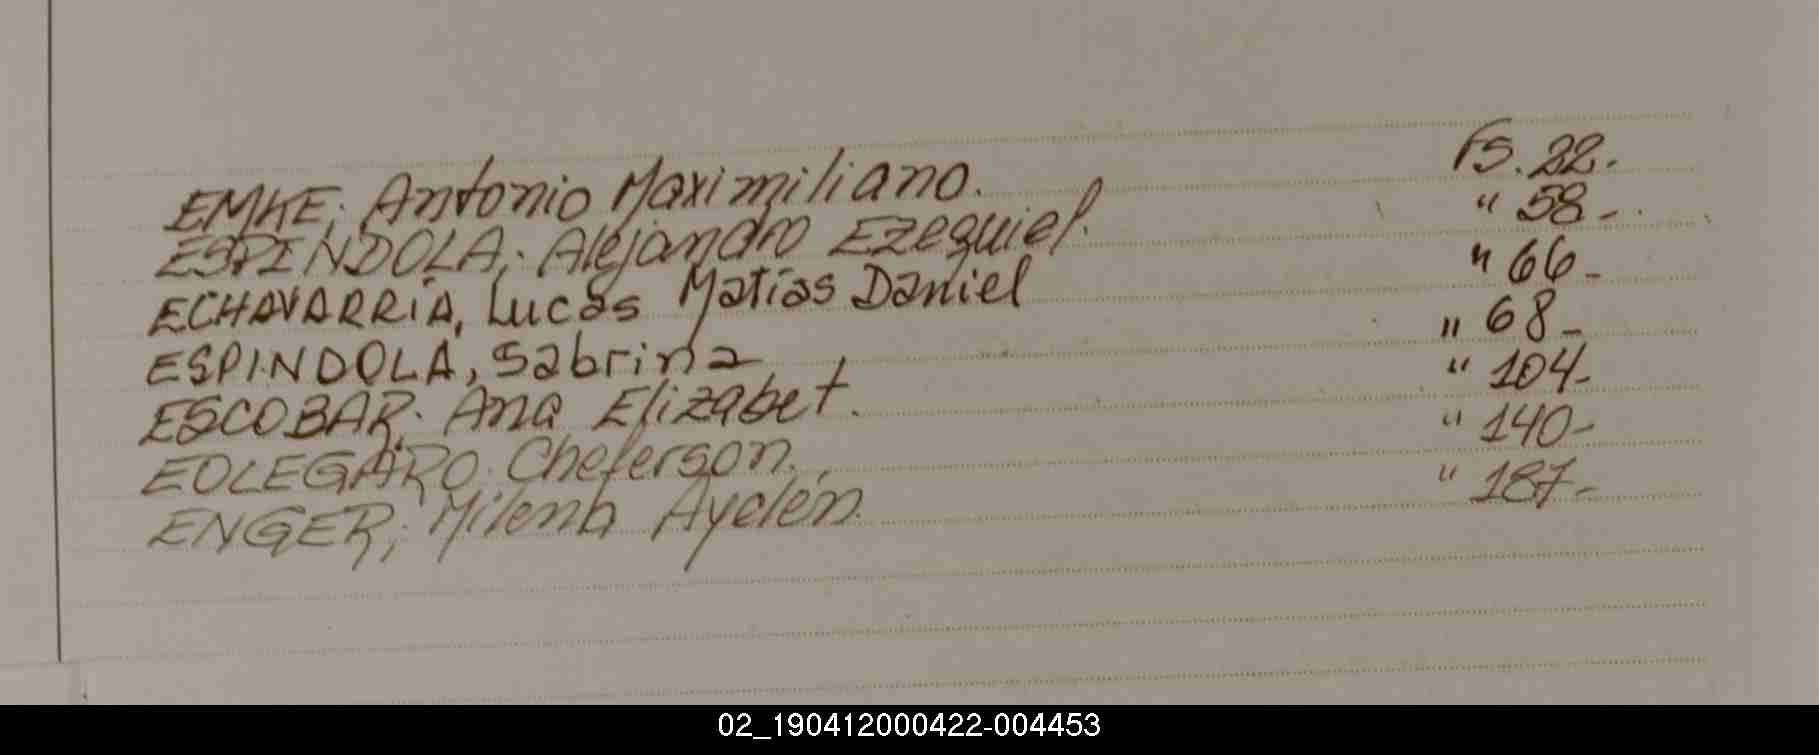 EMKE; Antonio Maximiliano. Fs. 22.-
ESPINDOLA; Alejandro Ezequiel. " 58-.
ECHAVARRÍA, Lucas Matías Daniel " 66-
ESPINDOLA, Sabrina " 68-
ESCOBAR; Ana Elizabet. " 104-
EOLEGARO. Cheferson. " 140-
ENGER; Milena Ayelén. " 187-
02_190412000422-004453